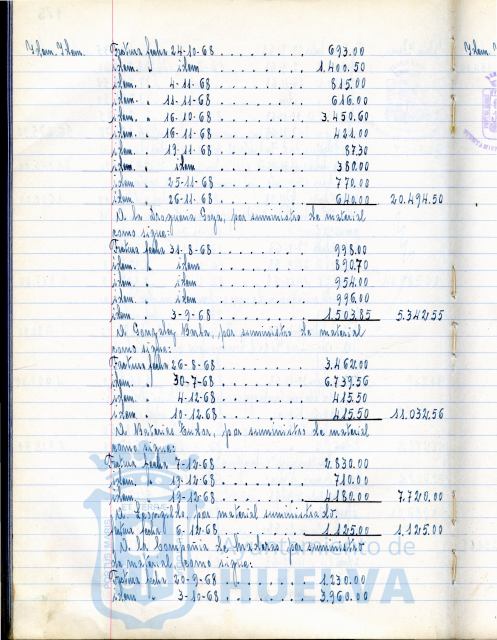 Idem. Idem.
Factura fecha 24-10-68 ........ 693.00
idem. " idem ........ 1.400.50
idem. " 4-11-68 ........ 815.00
idem. " 11-11-68 ........ 616.00
idem. " 16-10-68 ........ 3.450.60
idem. " 16-11-68 ........ 421.00
idem. " 19-11-68 ........ 87.30
idem. " idem ........ 380.00
idem. " 25-11-68 ........ 770.00
idem. " 26-11-68 ........ 640.00 20.494.50
A la Droguería Goya, por suministro de material
como sigue:
Factura fecha 31-8-68 ........ 998.00
idem. " idem ........ 890.70
idem. " idem ........ 954.00
idem. " idem ........ 996.00
idem. " 3-9-68 ........ 1.503.85 5.342.55
A González Barba, por suministro de material
como sigue:
Factura fecha 26-8-68 ........ 3.462.00
idem. " 30-7-68 ........ 6.739.56
idem. " 4-12-68 ........ 415.50
idem. " 10-12-68 ........ 415.50 11.032.56
A Baterías Tudor, por suministro de material
como sigue:
Factura fecha 7-12-68 ........ 2.830.00
idem. " 13-12-68 ........ 710.00
idem. " 19-12-68 ........ 4.180.00 7.720.00
A por material suministrado.
Factura fecha 6-12-68 ........ 1.125.00 1.125.00
A la Compañía de Maderas por suministro
de material, como sigue:
Factura fecha 20-9-68 ........ 1.230.00
idem " 3-10-68 ........ 3.960.00
Ayuntamiento de
HUELVA
Idem.